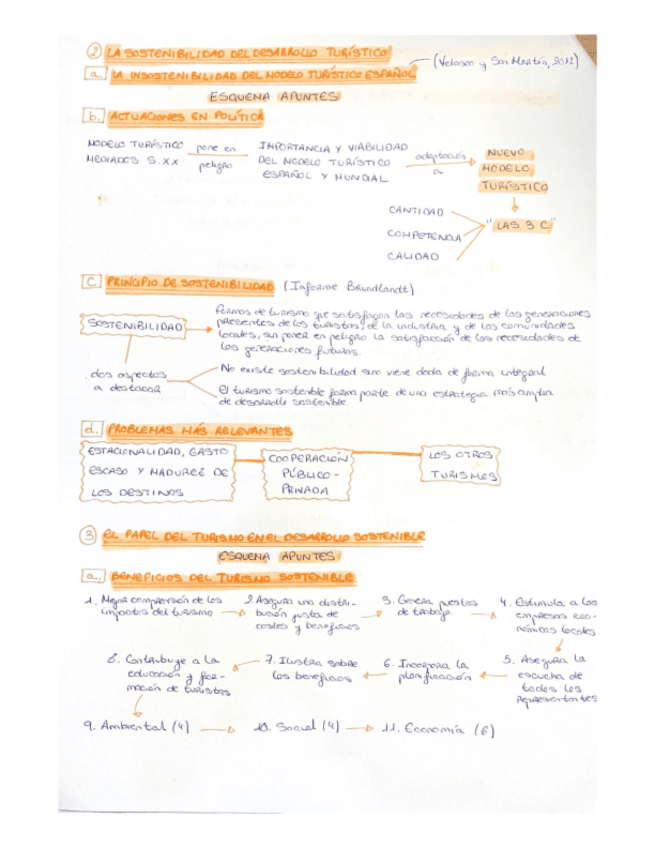 ② LA SOSTENIBILIDAD DEL DESARROLLO TURÍSTICO
a. LA INSOSTENIBILIDAD DEL MODELO TURÍSTICO ESPAÑOL (Velasco y San Martín, 2012)
ESQUEMA APUNTES
b. ACTUACIONES EN POLÍTICA
MODELO TURÍSTICO MEDIADOS S.XX
pone en peligro
IMPORTANCIA Y VIABILIDAD
DEL MODELO TURÍSTICO
ESPAÑOL Y MUNDIAL
adaptación a
NUEVO
MODELO
TURÍSTICO
"LAS 3 C"
CANTIDAD
COMPETENCIA
CALIDAD
C. PRINCIPIO DE SOSTENIBILIDAD (Informe Brundlandt)
SOSTENIBILIDAD
formas de turismo que satisfagan las necesidades de las generaciones
presentes de los turistas, de la industria y de las comunidades
locales, sin poner en peligro la satisfacción de las necesidades de
las generaciones futuras.
dos aspectos
a destacar
No existe sostenibilidad sino viene dada de forma integral
El turismo sostenible forma parte de una estrategia más amplia
de desarrollo sostenible
d. PROBLEMAS MÁS RELEVANTES
ESTACIONALIDAD, GASTO
ESCASO Y MADUREZ DE
LOS DESTINOS
COOPERACIÓN
PÚBLICO-
PRIVADA
LOS OTROS
TURISMOS
③ EL PAPEL DEL TURISMO EN EL DESARROLLO SOSTENIBLE
ESQUEMA APUNTES
a. BENEFICIOS DEL TURISMO SOSTENIBLE
1. Mejor comprensión de los
impactos del turismo
2. Asegura una distri-
bución justa de
costes y beneficios
3. Genera puestos
de trabajo
4. Estimula a las
empresas eco-
nómicas locales
5. Asegura la
escucha de
todos los
representantes
6. Incorpora la
planificación
7. Ilustra sobre
los beneficios
8. Contribuye a la
educación y for-
mación de turistas
9. Ambiental (4)
10. Social (4)
11. Economía (6)